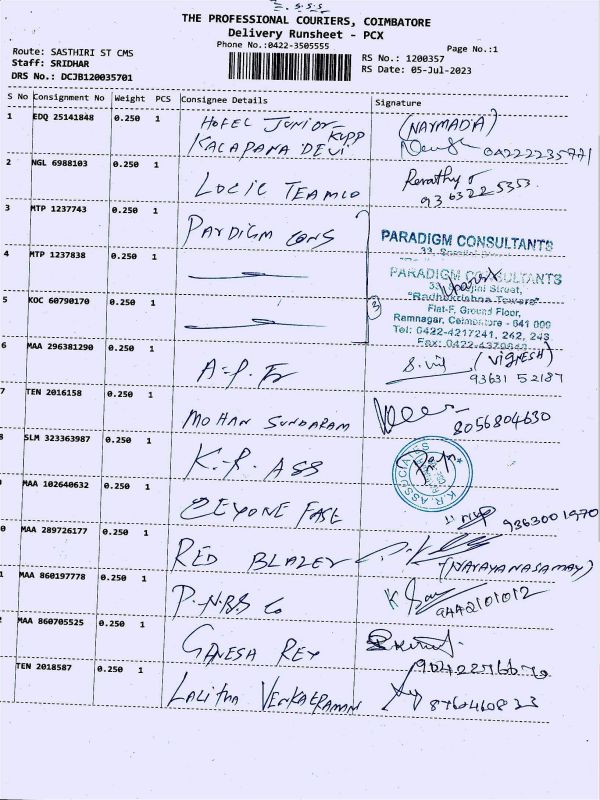 THE PROFESSIONAL COURIERS, COIMBATORE
Delivery Runsheet - PCX
Phone No.:0422-3505555
Page No.:1
Route: SASTHIRI ST CMS
Staff: SRIDHAR
DRS No.: DCJB120035701
RS No.: 1200357
RS Date: 05-Jul-2023
S No Consignment No Weight PCS Consignee Details Signature
1 EDQ 25141848 0.250 1 HOTEL JUNIOR KUPP (NARMADA)
KALAPANA DEVI
2 NGL 6988103 0.250 1 LOGIC TEAMCO Revathy
93 6322 5353
3 MTP 1237743 0.250 1 PARDIGM CONS PARADIGM CONSULTANTS
4 MTP 1237838 0.250 1 PARADIGM CONSULTANTS
33, Sarojini Street,
"Radhakrishna Towers"
5 KOC 60790170 0.250 1 3 Flat-F, Ground Floor,
Ramnagar, Coimbatore - 641 009
Tel: 0422-4217241, 262, 243
6 MAA 296381290 0.250 1 A.P. (VIGNESH)
93631 52187
7 TEN 2016158 0.250 1 MOHAN SUNDARAM 8056804630
8 SLM 323363987 0.250 1 K.R. ASS K.R. ASSOCIATES
MAA 102640632 0.250 1 9363001970
0 MAA 289726177 0.250 1 RED BLAZER (NARAYANASAMAY)
1 MAA 860197778 0.250 1 P.N.B.S Co 9442101012
2 MAA 860705525 0.250 1 GANESA REY
TEN 2018587 0.250 1 LALITHA VENKATRAMAN